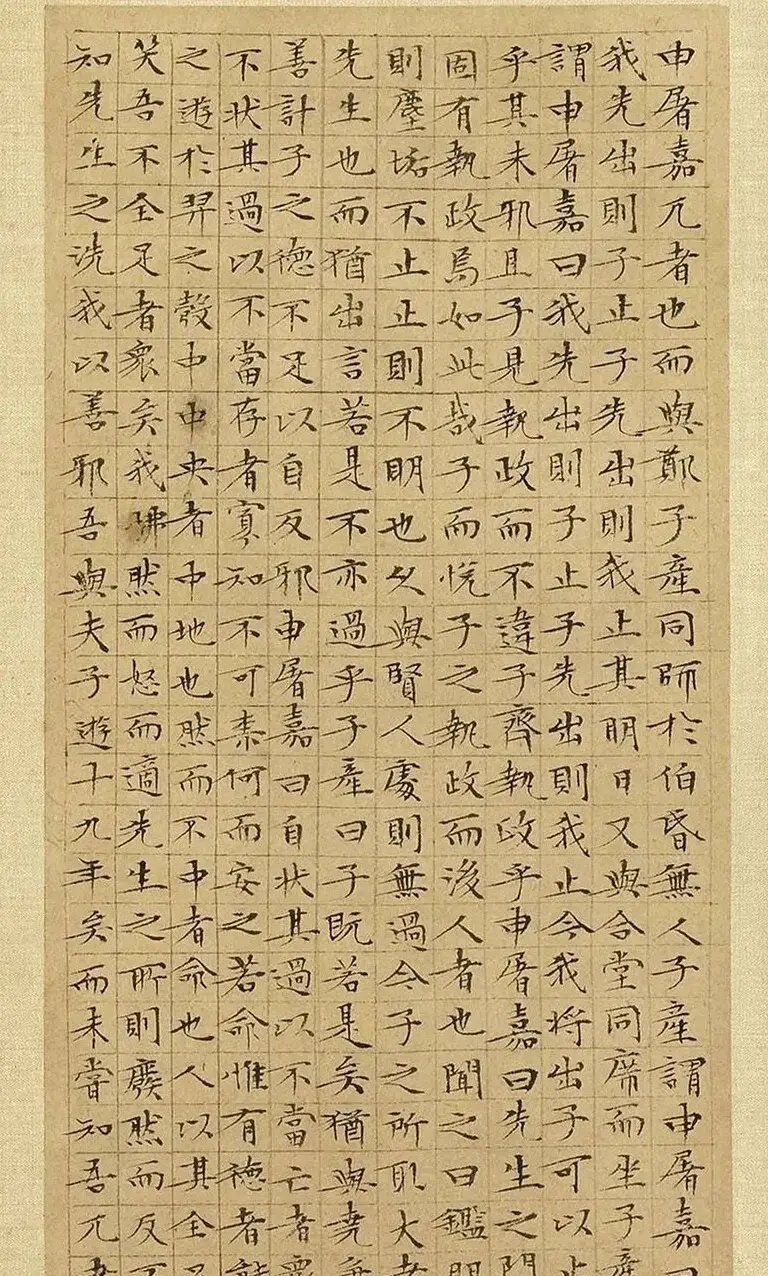 申屠嘉兀者也而與鄭子產同師於伯昏無人子產謂申屠嘉曰
我先出則子止子先出則我止其明日又與合堂同席而坐子產
謂申屠嘉曰我先出則子止子先出則我止今我將出子可以止
乎其未邪且子見執政而不違子齊執政乎申屠嘉曰先生之門
固有執政焉如此哉子而悅子之執政而後人者也聞之曰鑑明
則塵垢不止止則不明也久與賢人處則無過今子之所取大者
先生也而猶出言若是不亦過乎子產曰子既若是矣猶與堯爭
善計子之德不足以自反邪申屠嘉曰自狀其過以不當亡者眾
不狀其過以不當存者寡知不可柰何而安之若命惟有德者能
之遊於羿之彀中中央者中地也然而不中者命也人以其全足
笑吾不全足者眾矣我怫然而怒而適先生之所則廢然而反不
知先生之洗我以善邪吾與夫子遊十九年矣而未嘗知吾兀者